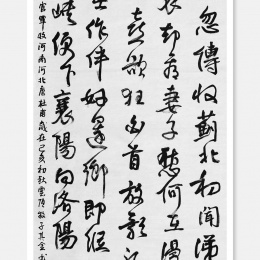 忽傳收薊北初聞涕
裳却看妻子愁何在漫
喜欲狂白首放歌
作伴好還鄉即從
峽便下襄陽向洛陽
官軍收河南河北唐杜甫歲在己亥初秋雲